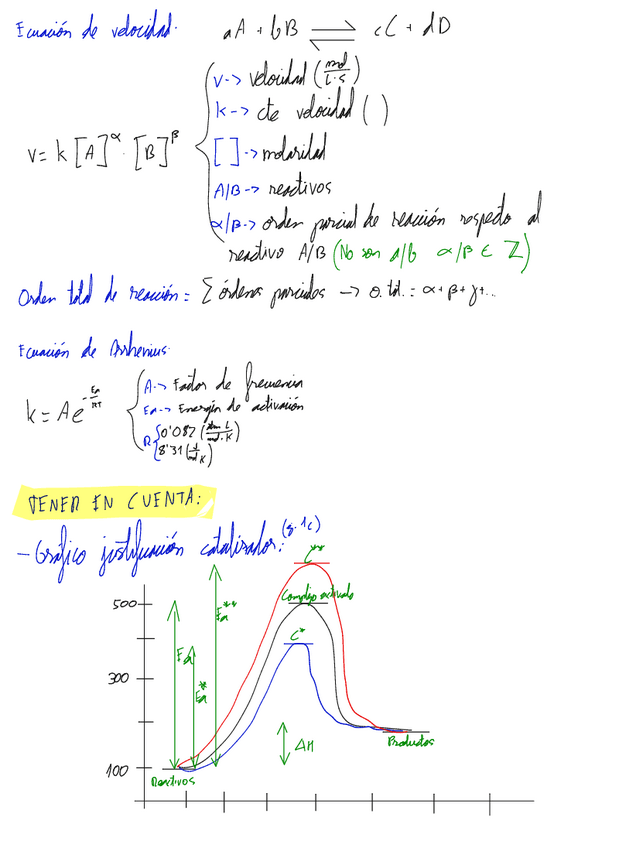 Ecuación de velocidad. aA + bB ⇌ cC + dD
v -> velocidad (mol/L·s)
k -> cte velocidad ( )
v = k [A]^α · [B]^β
[ ] -> molaridad
A/B -> reactivos
α/β -> orden parcial de reacción respecto al
reactivo A/B (No son a/b α/β ∈ ℤ)
Orden total de reacción = Σ órdenes parciales -> o. tot. = α + β + γ + ...
Ecuación de Arrhenius
A -> Factor de frecuencia
k = A e^(-Ea/RT)
Ea -> Energía de activación
R 0'082 (atm·L/mol·K)
8'31 (J/mol·K)
TENER EN CUENTA:
- Gráfico justificación catalizador: (g. 1c)
C**
500
Complejo activado
Ea**
C*
Ea
300
Ea*
ΔH
Productos
100
Reactivos